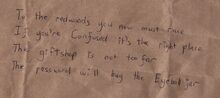 To the redwoods you now must race
If you're Confused it's the right place
The giftshop is not too far
The password will buy the Eyeball jar